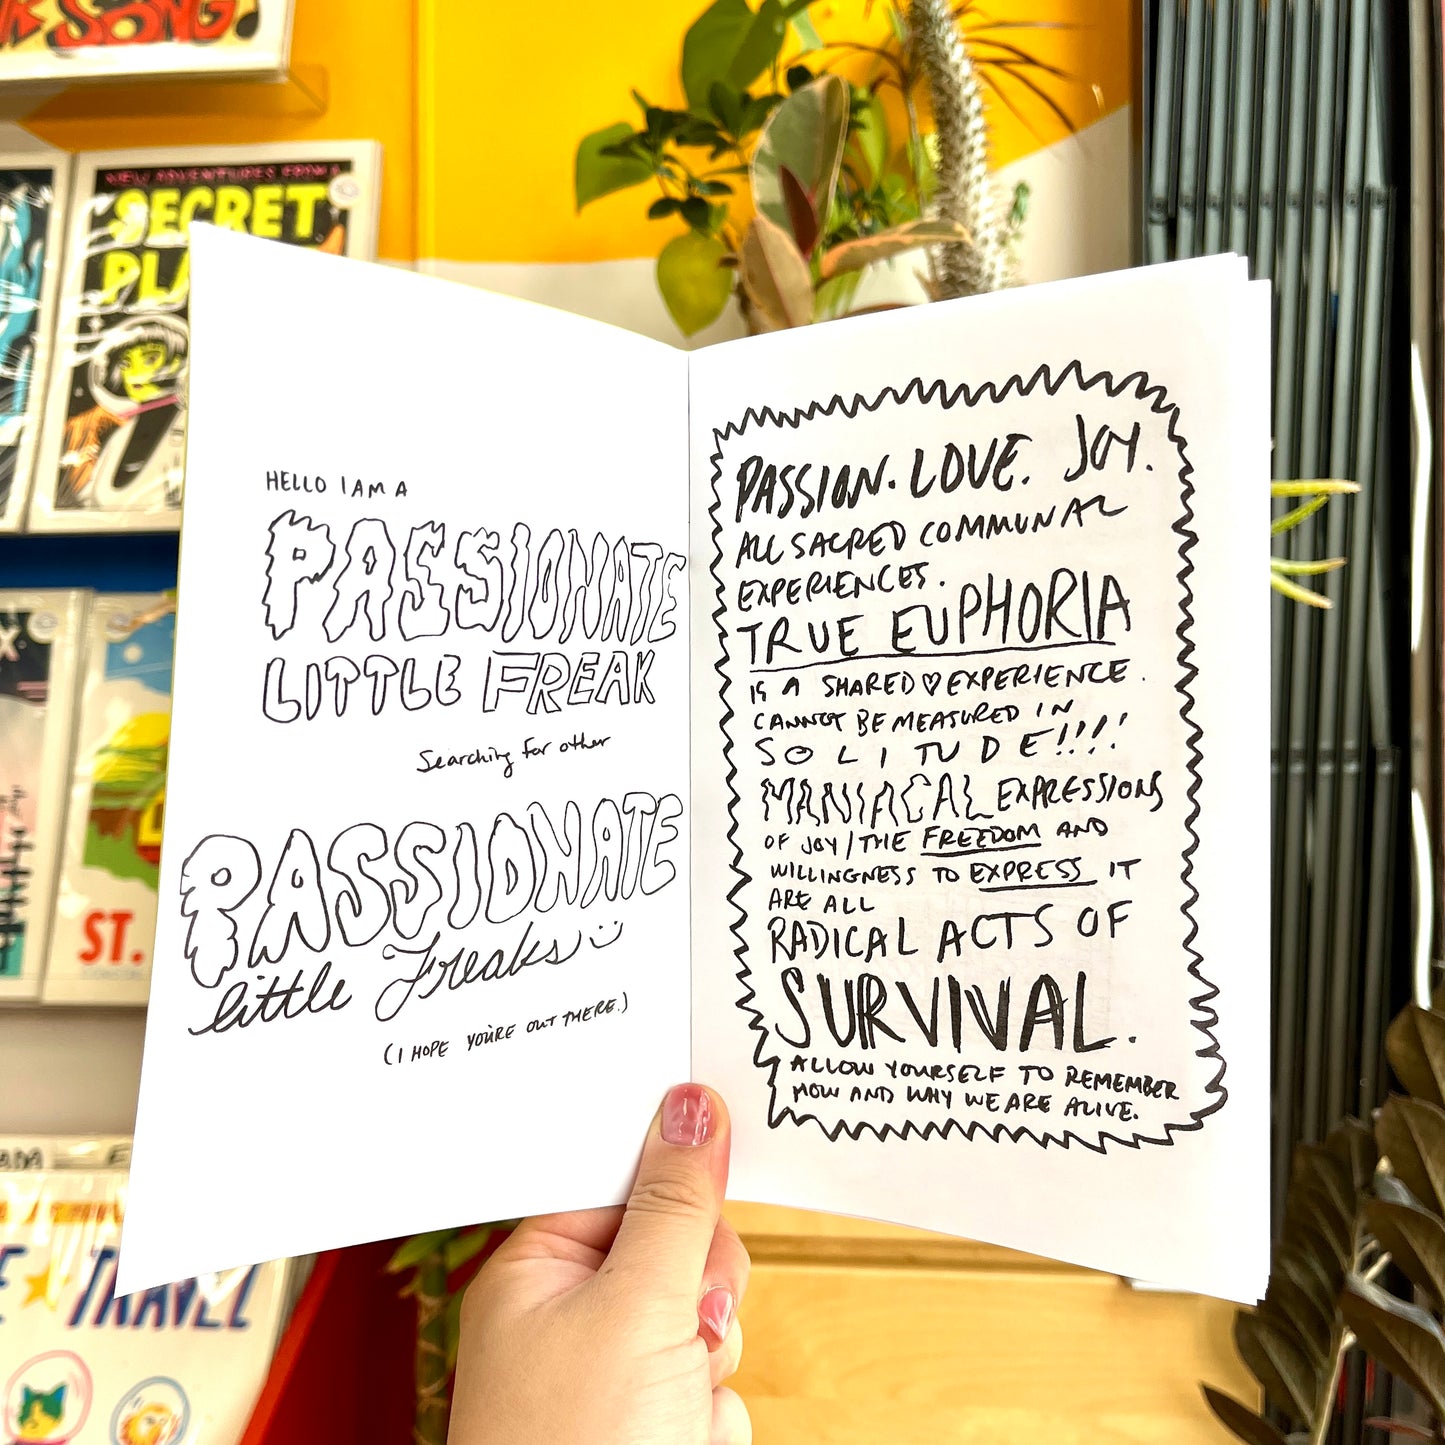 SONG!
NEW ADVENTURES FROM A
SECRET
PLA
ST.
TRAVEL
HELLO I AM A
PASSIONATE
LITTLE FREAK
Searching for other
PASSIONATE
little Freaks :)
(I HOPE YOU'RE OUT THERE.)
PASSION. LOVE. JOY.
ALL SACRED COMMUNAL
EXPERIENCES.
TRUE EUPHORIA
IS A SHARED ♡ EXPERIENCE.
CANNOT BE MEASURED IN
SOLITUDE!!!!
MANIACAL EXPRESSIONS
OF JOY / THE FREEDOM AND
WILLINGNESS TO EXPRESS IT
ARE ALL
RADICAL ACTS OF
SURVIVAL.
ALLOW YOURSELF TO REMEMBER
HOW AND WHY WE ARE ALIVE.